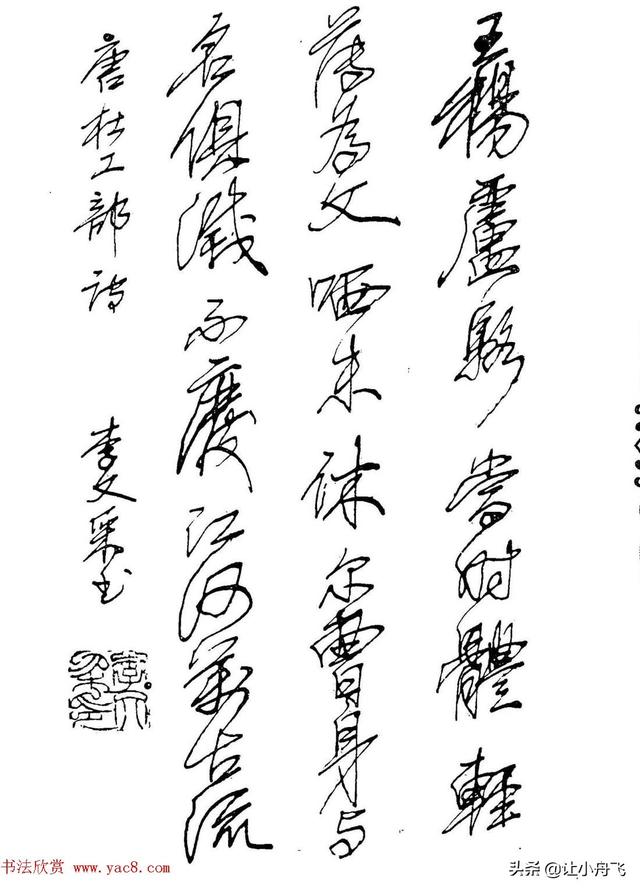 王楊盧駱當时體輕
薄為文哂未休尔曹身与
名俱滅不廢江河萬古流
唐杜工部诗 李文采书
书法欣赏 www.yac8.com
头条 @让小舟飞